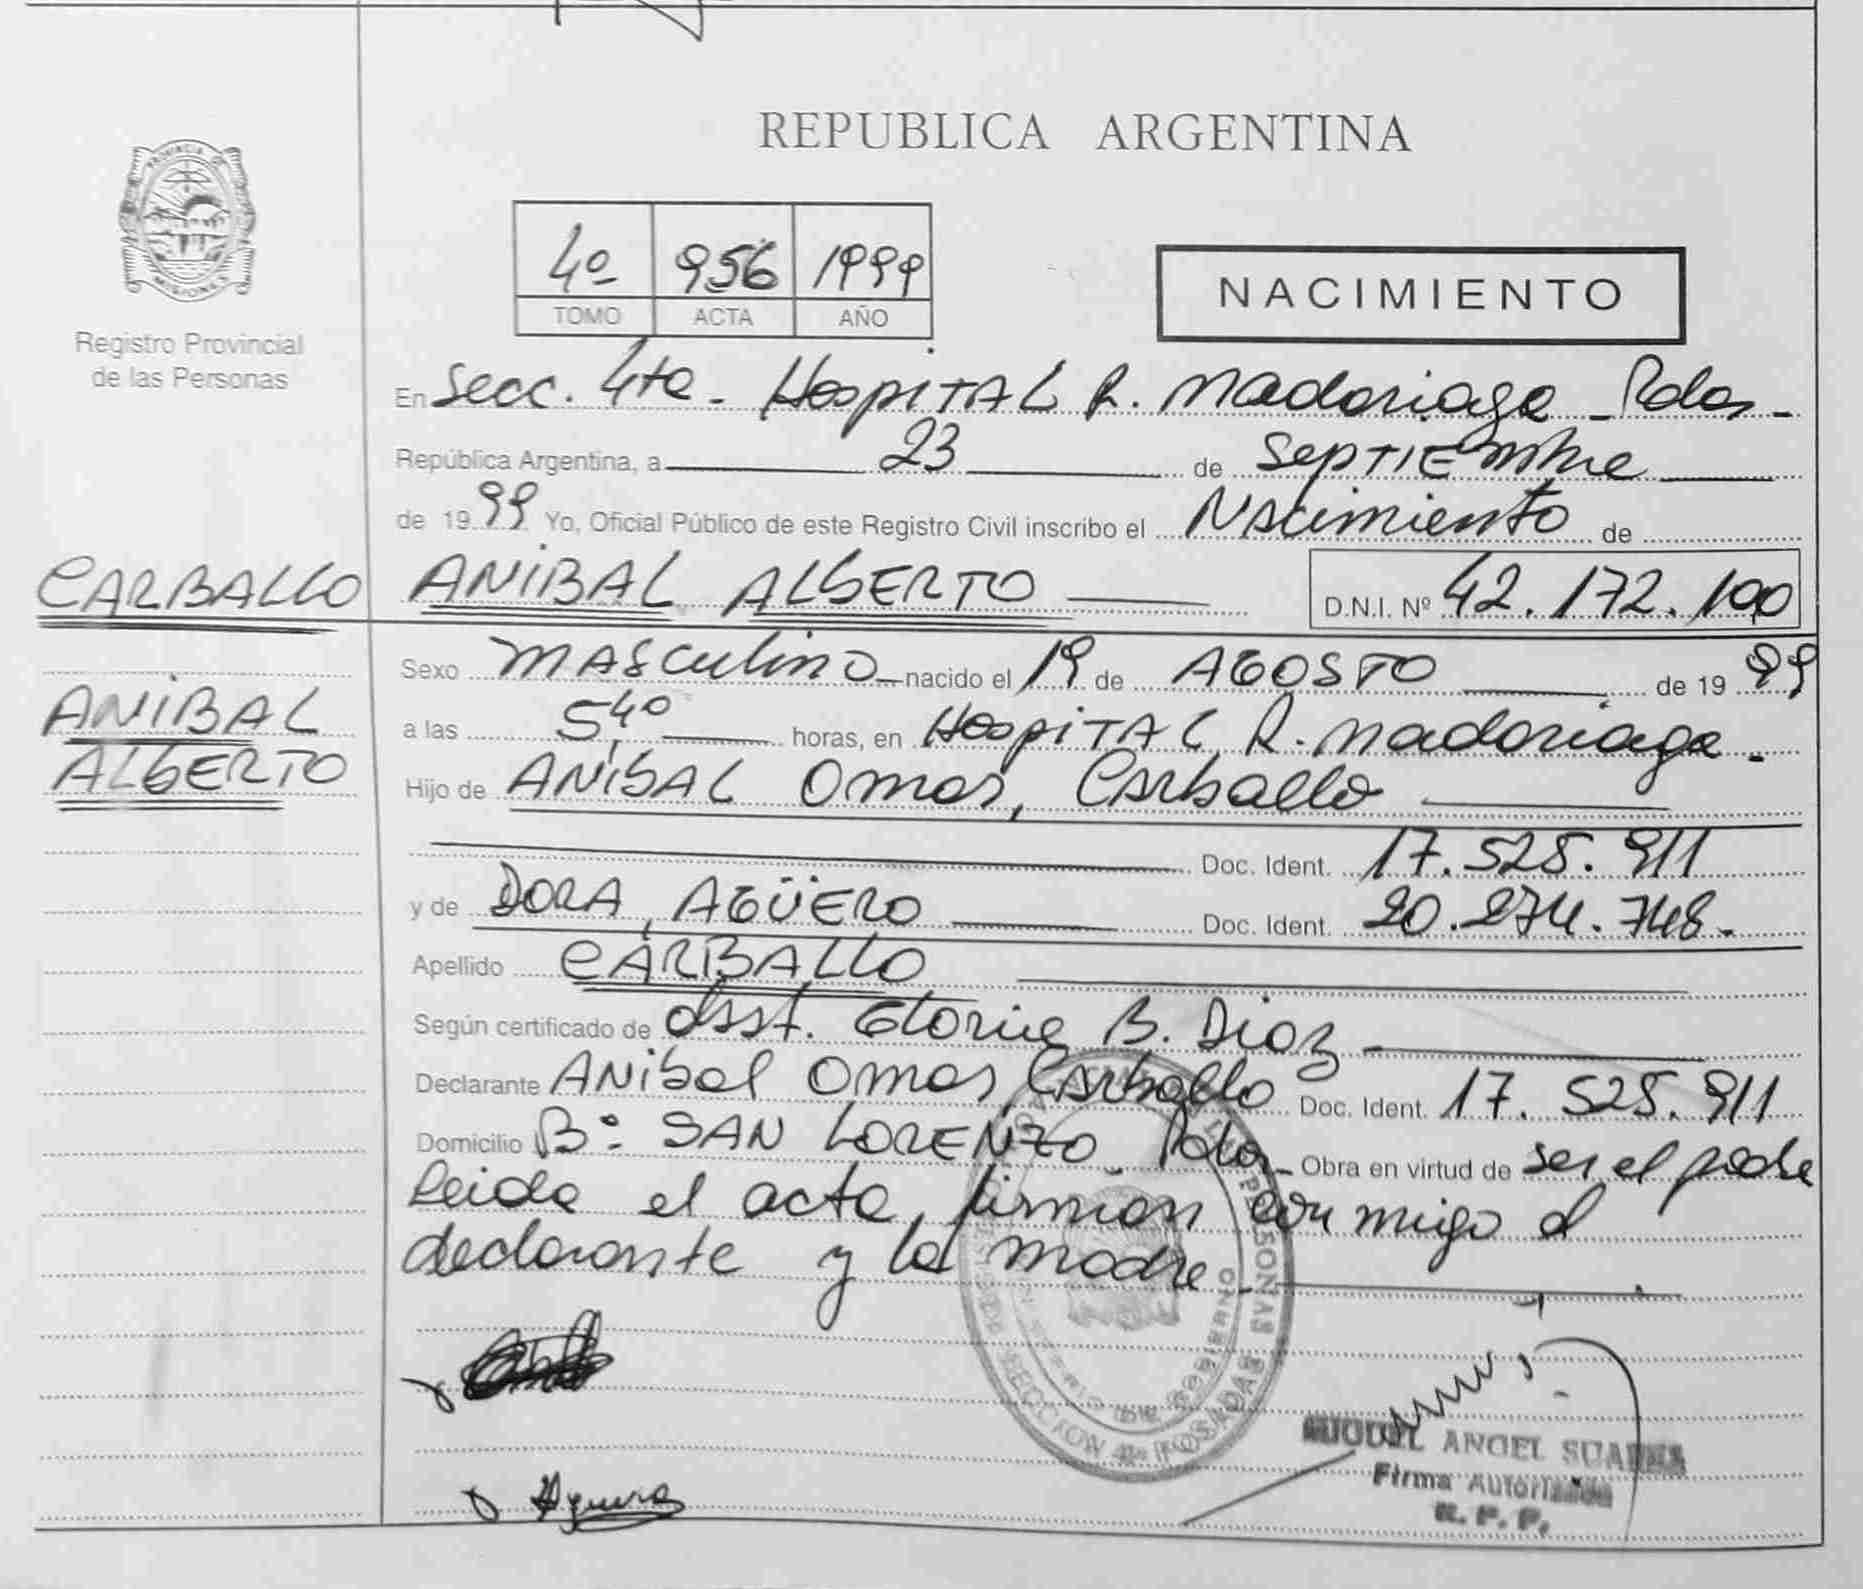 REPUBLICA ARGENTINA
PROVINCIA DE
MISIONES
Registro Provincial
de las Personas
4º 956 1999
TOMO ACTA AÑO
NACIMIENTO
En Secc. 4ta - Hospital R. Madariaga - Pdas -
República Argentina, a 23 de Septiembre
de 1999 Yo, Oficial Público de este Registro Civil inscribo el Nacimiento de
CARBALLO ANIBAL ALBERTO D.N.I. Nº 42.172.190
ANIBAL
ALBERTO
Sexo Masculino nacido el 19 de AGOSTO de 1999
a las 5,40 horas, en Hospital R. Madariaga -
Hijo de ANIBAL Omar, Carballo
Doc. Ident. 17.525.911
y de DORA, AGÜERO Doc. Ident. 20.274.748.-
Apellido CARBALLO
Según certificado de Obst. Gloria B. Diaz
Declarante Anibal Omar, Carballo Doc. Ident. 17.525.911
Domicilio Bº SAN LORENZO - Pdas - Obra en virtud de ser el padre
Leida el acta, firman conmigo el
declarante y la madre
SECCION 4a POSADAS
Aguero
MIGUEL ANGEL SUAREZ
Firma Autorizada
R. P. P.